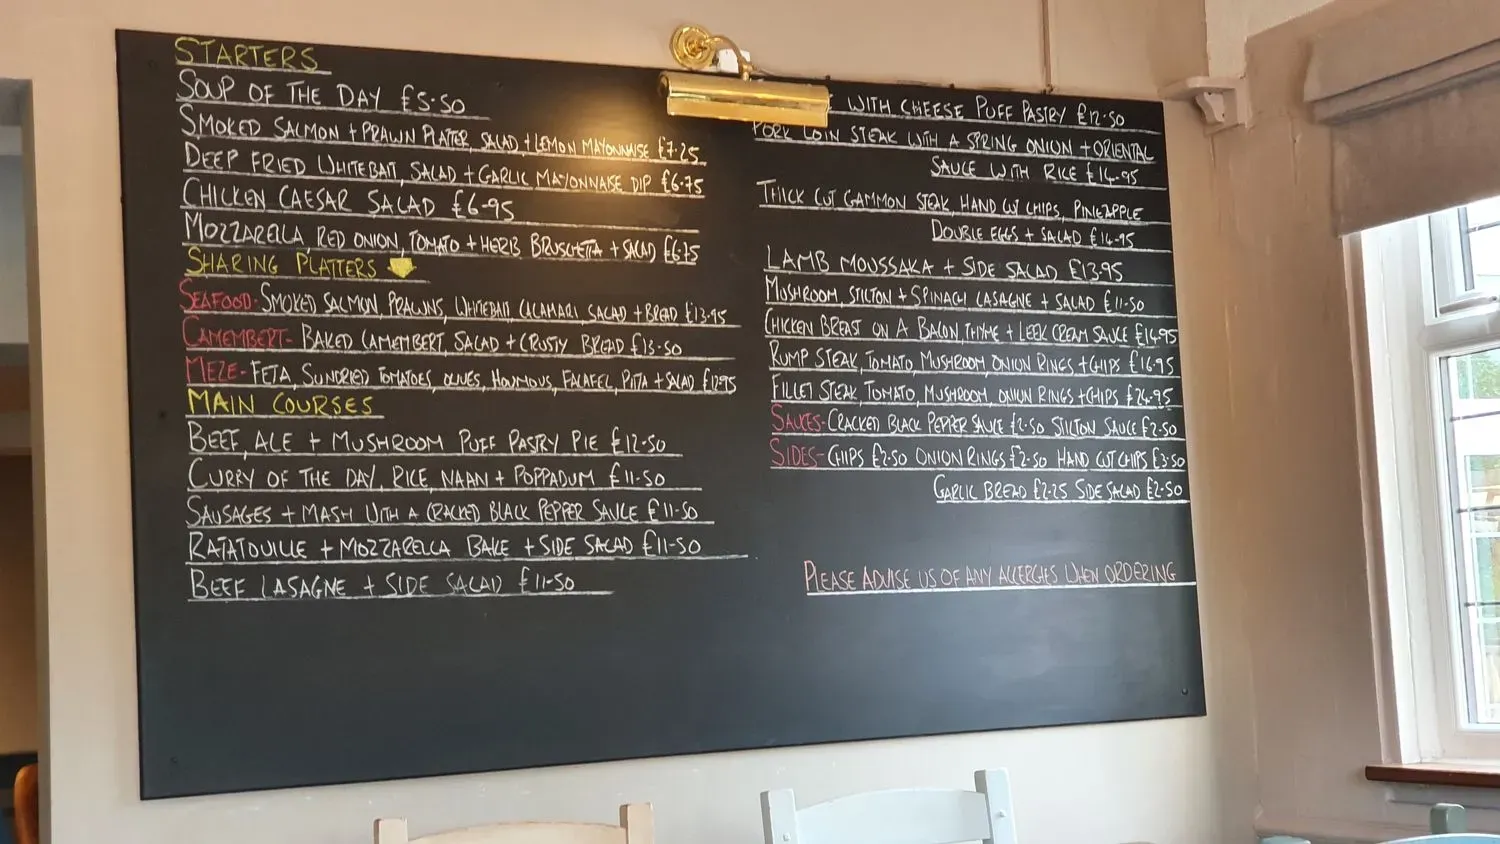 STARTERS
SOUP OF THE DAY £5·50
SMOKED SALMON + PRAWN PLATTER, SALAD + LEMON MAYONNAISE £7·25
DEEP FRIED WHITEBAIT, SALAD + GARLIC MAYONNAISE DIP £6·75
CHICKEN CAESAR SALAD £6·95
MOZZARELLA, RED ONION, TOMATO + HERB BRUSCHETTA + SALAD
SHARING PLATTERS
SEAFOOD- SMOKED SALMON, PRAWNS, WHITEBAIT, CALAMARI, SALAD + BREAD £13·95
CAMEMBERT- BAKED CAMEMBERT, SALAD + CRUSTY BREAD £13·50
MEZE- FETA, SUNDRIED TOMATOES, OLIVES, HOUMOUS, FALAFEL, PITTA + SALAD £12·95
MAIN COURSES
BEEF, ALE + MUSHROOM PUFF PASTRY PIE £12·50
CURRY OF THE DAY, RICE, NAAN + POPPADUM £11·50
SAUSAGES + MASH WITH A CRACKED BLACK PEPPER SAUCE £11·50
RATATOUILLE + MOZZARELLA BAKE + SIDE SALAD £11·50
BEEF LASAGNE + SIDE SALAD £11·50
WITH CHEESE PUFF PASTRY £12·50
PORK LOIN STEAK WITH A SPRING ONION + ORIENTAL
SAUCE WITH RICE £14·95
THICK CUT GAMMON STEAK, HAND CUT CHIPS, PINEAPPLE
DOUBLE EGGS + SALAD £14·95
LAMB MOUSSAKA + SIDE SALAD £13·95
MUSHROOM, STILTON + SPINACH LASAGNE + SALAD £11·50
CHICKEN BREAST ON A BACON, THYME + LEEK CREAM SAUCE £14·95
RUMP STEAK, TOMATO, MUSHROOM, ONION RINGS + CHIPS £16·95
FILLET STEAK, TOMATO, MUSHROOM, ONION RINGS + CHIPS £24·95
SAUCES- CRACKED BLACK PEPPER SAUCE £2·50 STILTON SAUCE £2·50
SIDES- CHIPS £2·50 ONION RINGS £2·50 HAND CUT CHIPS £3·50
GARLIC BREAD £2·25 SIDE SALAD £2·50
PLEASE ADVISE US OF ANY ALLERGIES WHEN ORDERING